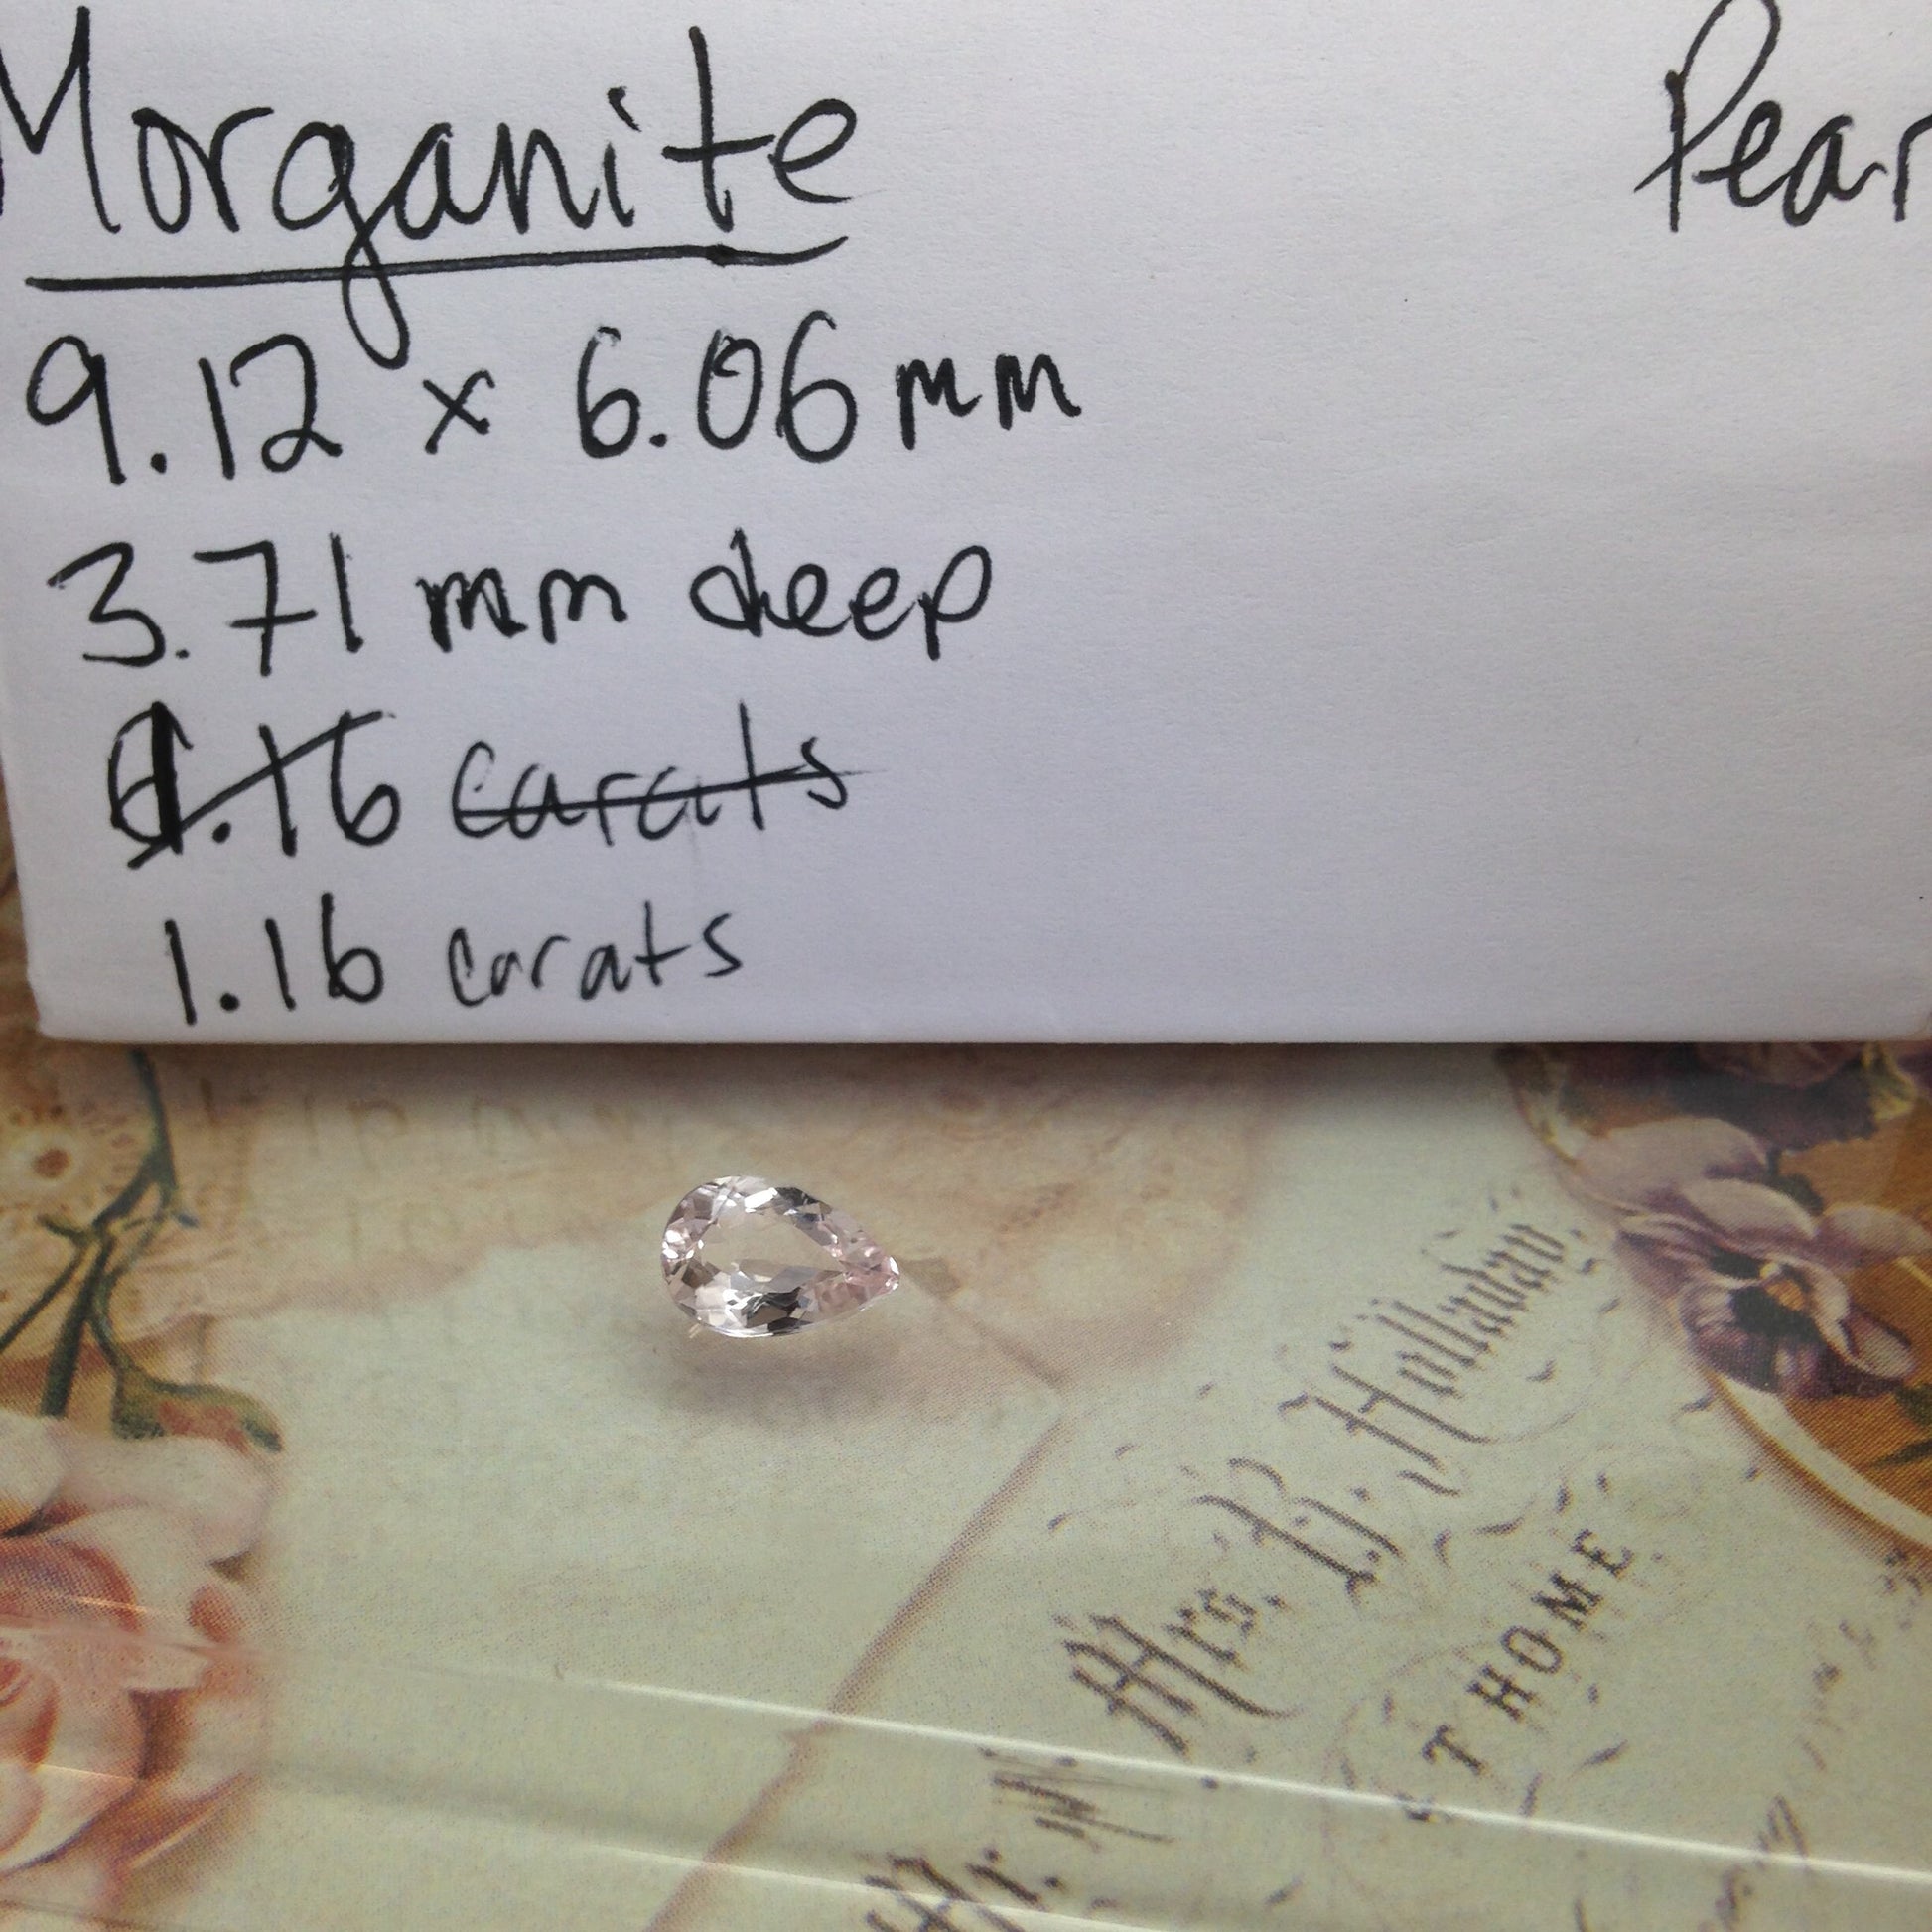 Morganite
Pear
9.12 x 6.06 mm
3.71 mm deep
1.16 carats
1.16 carats
Mrs. B. Holladay
T HOME
Mr.